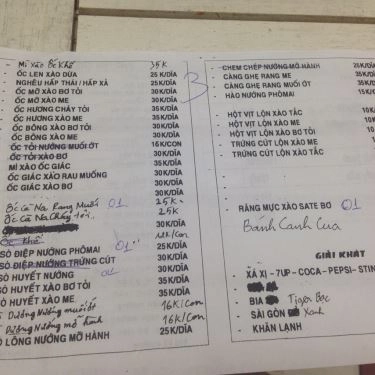 - Mì xào ốc khô 35K
- ỐC LEN XÀO DỪA 25K/DĨA
- NGHÊU HẤP THÁI / HẤP XẢ 25K/DĨA
- ỐC MỠ XÀO BƠ TỎI 30K/DĨA
- ỐC MỠ XÀO ME 30K/DĨA
- ỐC HƯƠNG CHÁY TỎI 35K/DĨA
- ỐC HƯƠNG XÀO ME 35K/DĨA
- ỐC BÔNG XÀO BƠ TỎI 30K/DĨA
- ỐC BÔNG XÀO ME 30K/DĨA
- ỐC TỎI NƯỚNG MUỐI ỚT 16K/CON
- ỐC TỎI XÀO BƠ 30K/DĨA
MÌ XÀO ỐC GIÁC 35K/DĨA
ỐC GIÁC XÀO RAU MUỐNG 30K/DĨA
ỐC GIÁC XÀO BƠ 30K/DĨA
30K/DĨA
Ốc Cà Na Rang Muối 01 25K
Ốc Cà Na Cháy tỏi 25K
30K/DĨA
Ốc Khô
SÒ ĐIỆP NƯỚNG PHÔMAI 01 25K/DĨA
SÒ ĐIỆP NƯỚNG TRỨNG CÚT 30K/DĨA
SÒ HUYẾT NƯỚNG 01 30K/DĨA
SÒ HUYẾT XÀO BƠ TỎI 30K/DĨA
SÒ HUYẾT XÀO ME 30K/DĨA
Dương Nướng muối ớt 16K/Con
Dương Nướng mỡ hành 16K/Con
SÒ LÔNG NƯỚNG MỠ HÀNH 25K/DĨA
3
- CHEM CHÉP NƯỚNG MỠ HÀNH
- CÀNG GHẸ RANG ME
- CÀNG GHẸ RANG MUỐI ỚT
- HÀO NƯỚNG PHÔMAI
- HỘT VỊT LỘN XÀO TẮC
- HỘT VỊT LỘN XÀO ME
- HỘT VỊT LỘN XÀO BƠ TỎI
- TRỨNG CÚT LỘN XÀO ME
- TRỨNG CÚT LỘN XÀO TẮC
RĂNG MỰC XÀO SATE BƠ 01
Bánh Canh Cua
GIẢI KHÁT
- XÁ XỊ - 7UP - COCA - PEPSI - STIN
- BIA Tiger Bạc
- SÀI GÒN Xanh
- KHĂN LẠNH